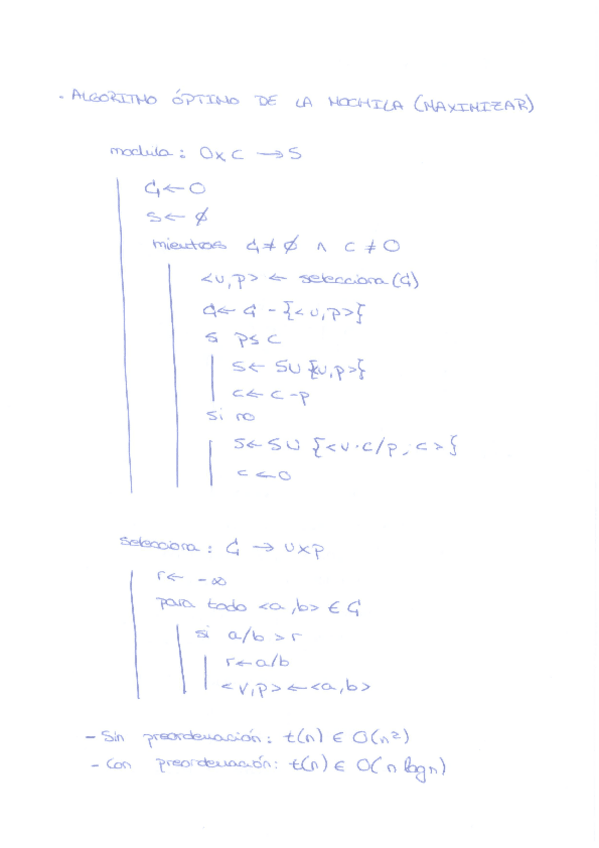 - ALGORITMO ÓPTIMO DE LA MOCHILA (MAXIMIZAR)
mochila: O x C → S
Ç ← O
S ← ∅
mientras Ç ≠ ∅ ∧ C ≠ 0
<v,p> ← selecciona (Ç)
Ç ← Ç - {<v,p>}
si p ≤ C
S ← S ∪ {<v,p>}
C ← C - p
si no
S ← S ∪ {<v·c/p, c>}
c ← 0
selecciona: Ç → v x p
r ← -∞
para todo <a,b> ∈ Ç
si a/b > r
r ← a/b
<v,p> ← <a,b>
- Sin preordenación: t(n) ∈ O(n²)
- Con preordenación: t(n) ∈ O(n log n)